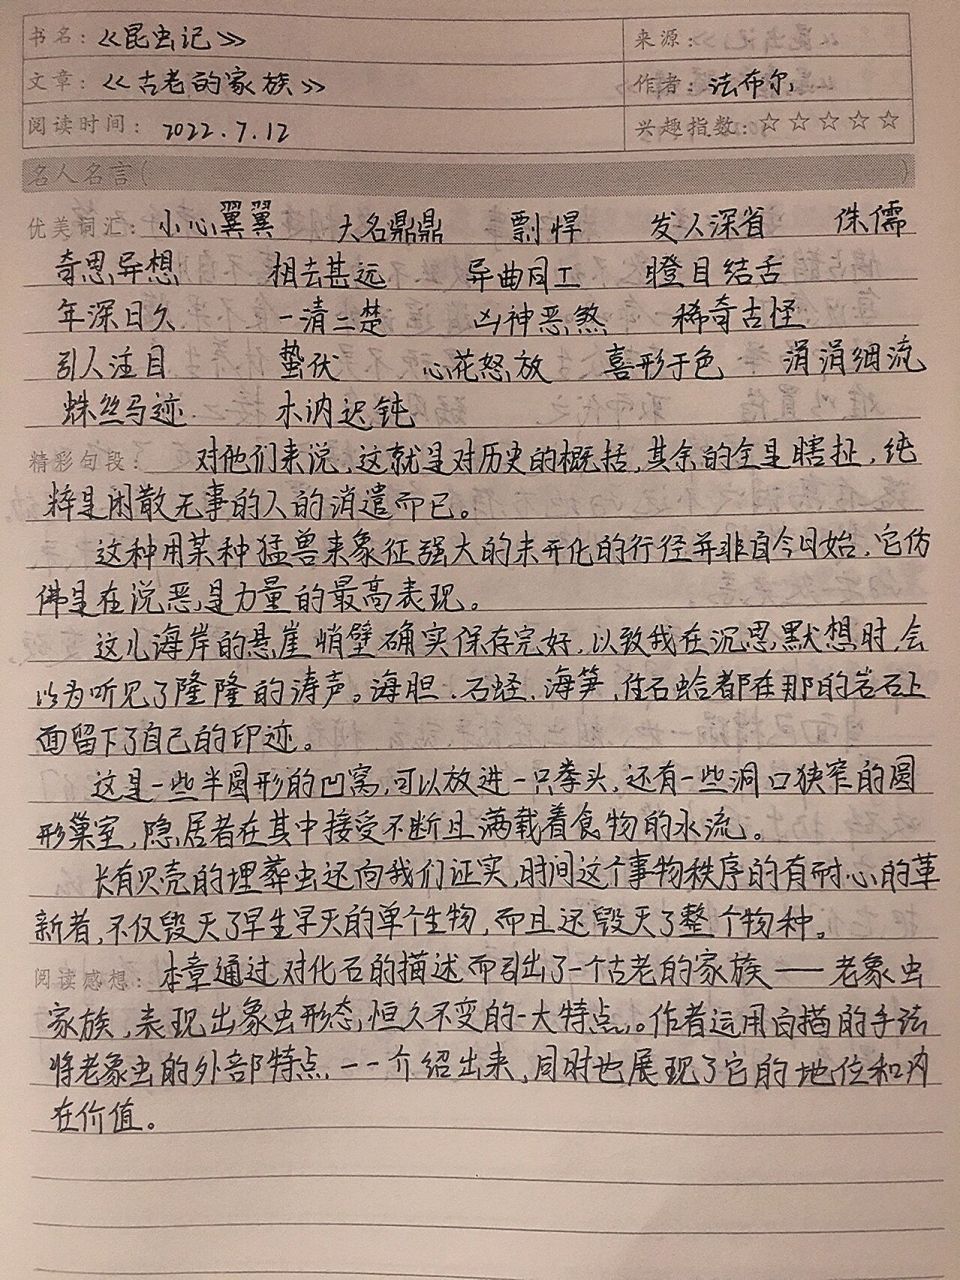 书名：《昆虫记》 来源：
文章：《古老的家族》 作者：法布尔
阅读时间：2022.7.12 兴趣指数：☆☆☆☆☆
名人名言(                    )
优美词汇：小心翼翼 大名鼎鼎 剽悍 发人深省 侏儒
奇思异想 相去甚远 异曲同工 瞪目结舌
年深日久 一清二楚 凶神恶煞 稀奇古怪
引人注目 蛰伏 心花怒放 喜形于色 涓涓细流
蛛丝马迹 木讷迟钝
精彩句段：对他们来说，这就是对历史的概括，其余的全是瞎扯，纯
粹是闲散无事的人的消遣而已。
这种用某种猛兽来象征强大的未开化的行径并非自今日始，它仿
佛是在说恶是力量的最高表现。
这儿海岸的悬崖峭壁确实保存完好，以致我在沉思默想时，会
以为听见了隆隆的涛声。海胆、石蛏、海笋、住石蛤都在那的岩石上
面留下了自己的印迹。
这是一些半圆形的凹窝，可以放进一只拳头，还有一些洞口狭窄的圆
形巢室，隐居者在其中接受不断且满载着食物的水流。
长有贝壳的埋葬虫还向我们证实，时间这个事物秩序的有耐心的革
新者，不仅毁灭了早生早灭的单个生物，而且还毁灭了整个物种。
阅读感想：本章通过对化石的描述而引出了一个古老的家族——老象虫
家族，表现出象虫形态，恒久不变的一大特点。作者运用白描的手法
将老象虫的外部特点一一介绍出来，同时也展现了它的地位和内
在价值。